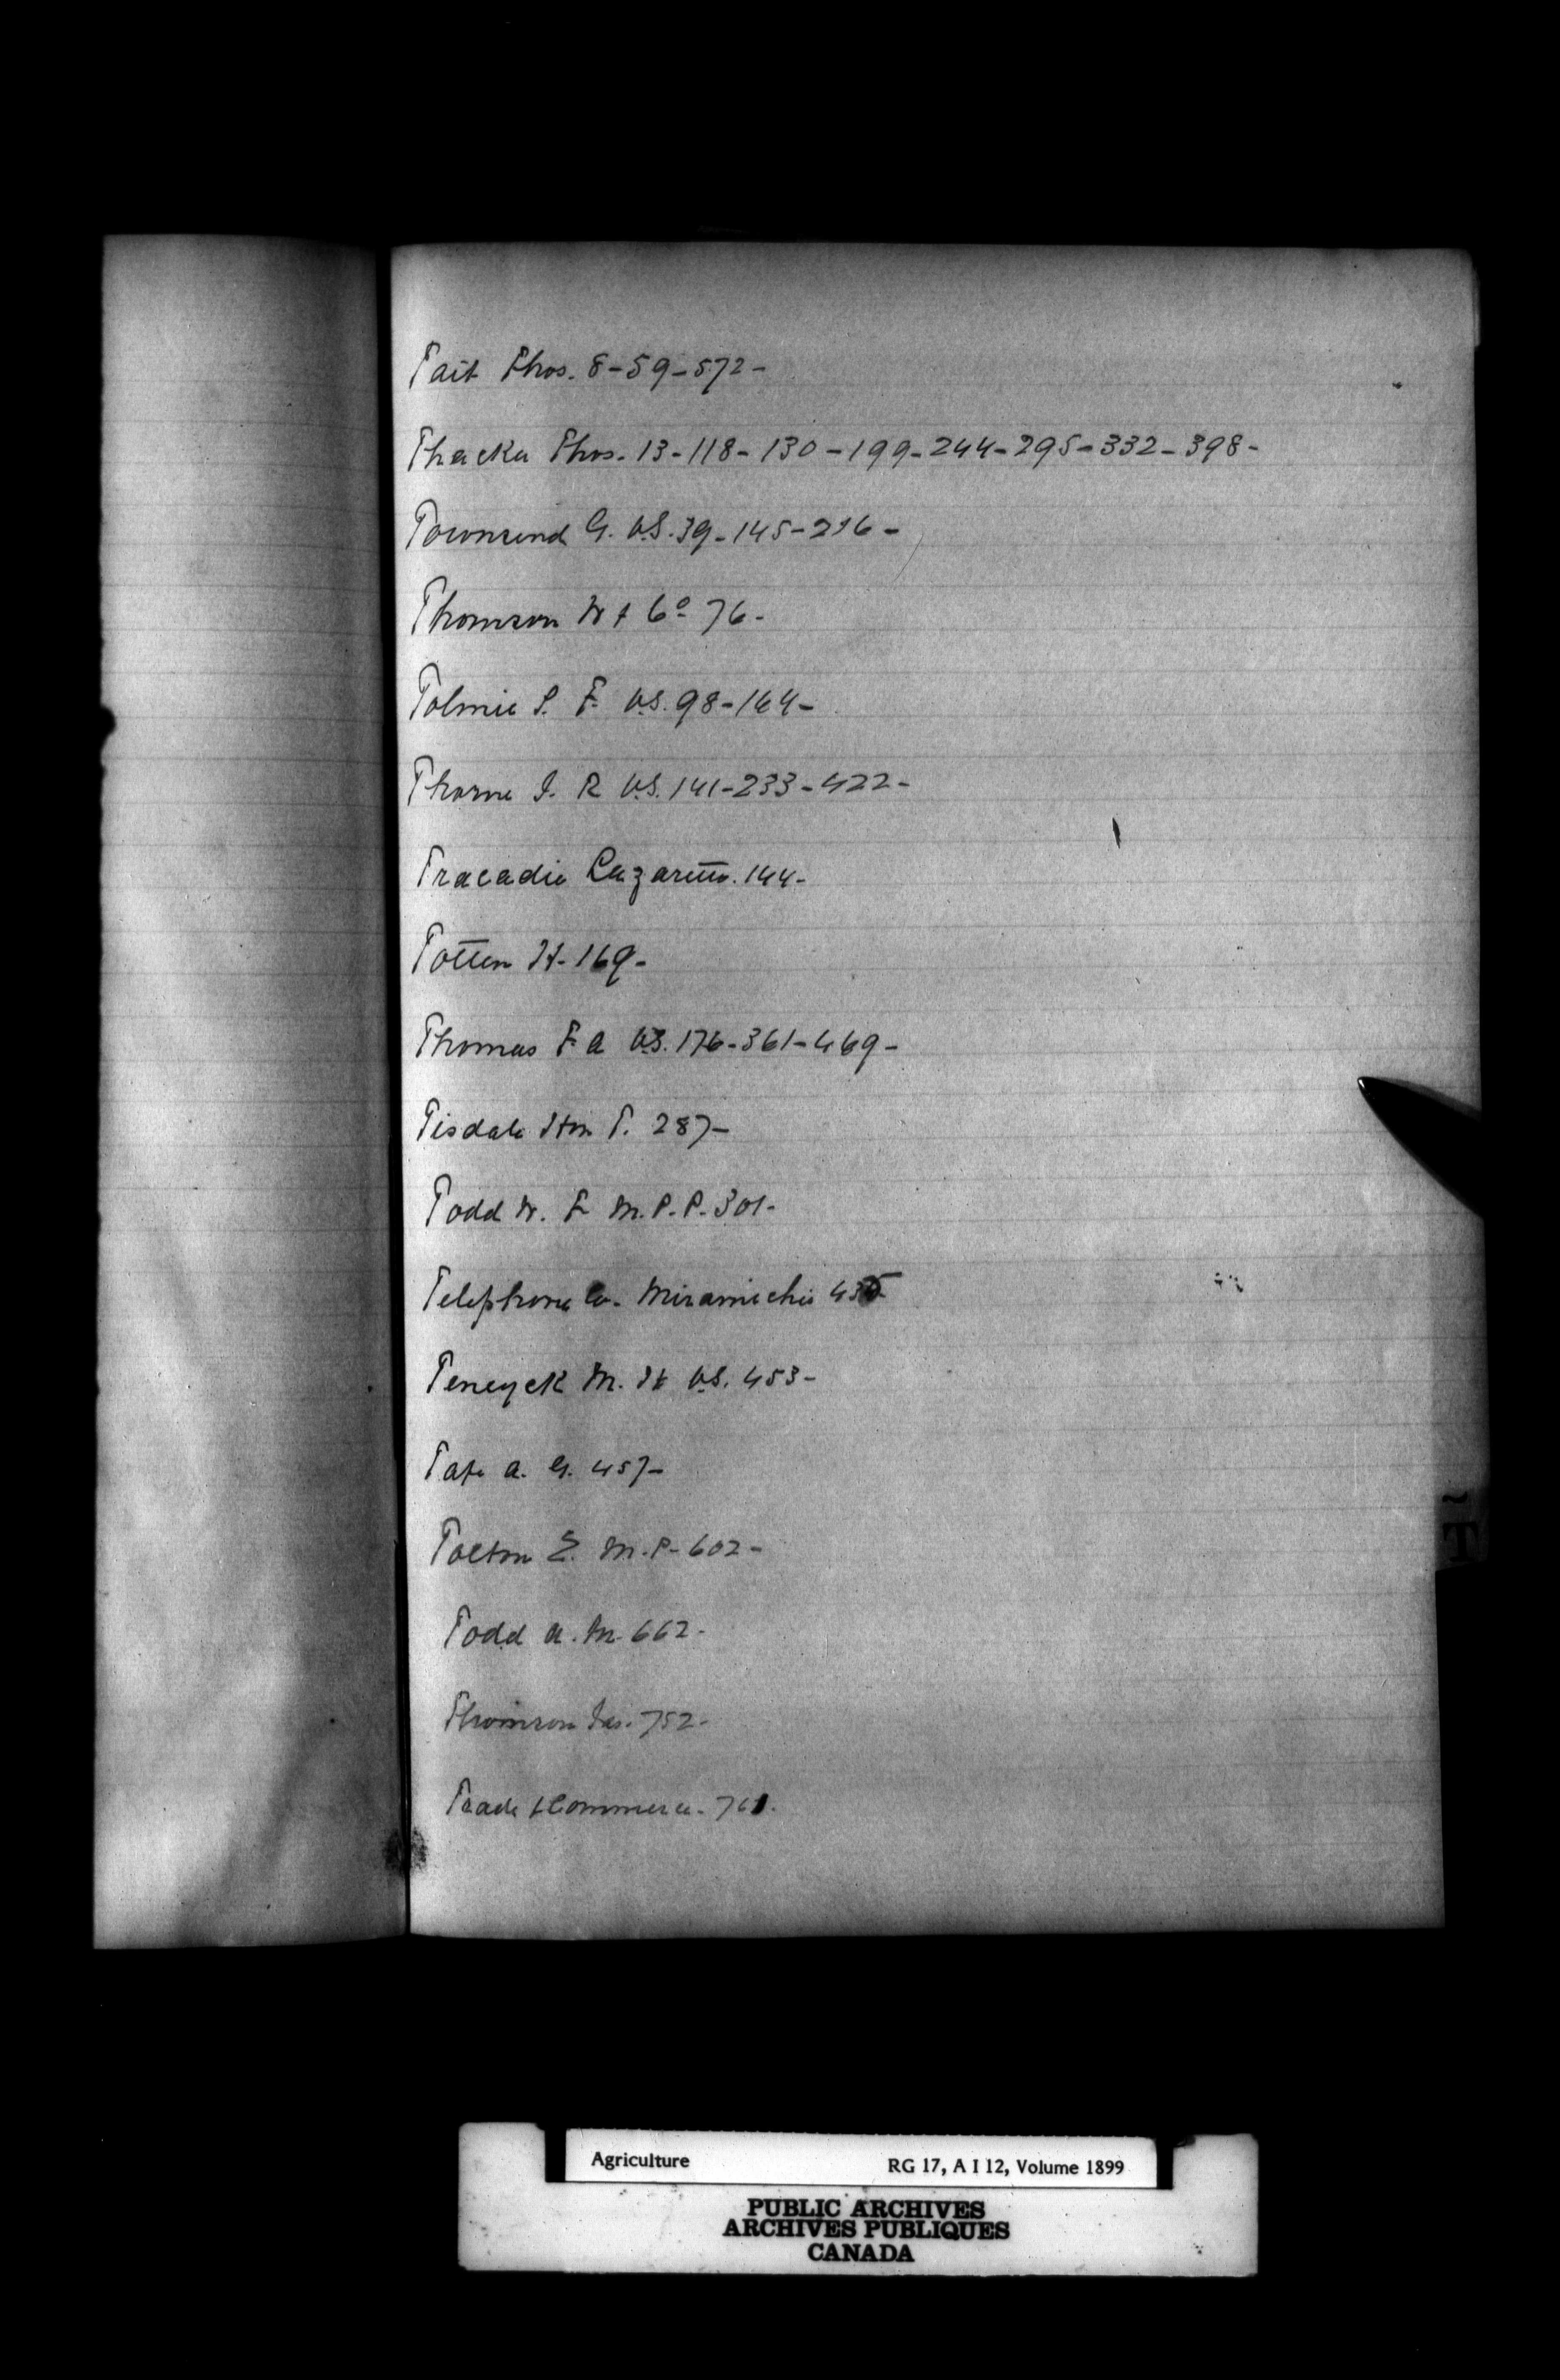 Tait Thos. 8-59-572-
Thacka Thos. 13-118-130-199-244-295-332-398-
Townsend G. V.S. 39-145-216-
Thomson W & Co 76-
Tolmie S. F. V.S. 98-164-
Thorne J. R V.S. 141-233-422-
Tracadie Lazaretto. 144-
Totten H- 169-
Thomas F. A V.S. 176-361-469-
Tisdale Hon T. 287-
Todd W. F M.P.P. 301-
Telephone Co. Miramichi
Teneyck M. H V.S. 453-
A. G. 457-
Tolton E. M.P- 602-
Todd A. M. 662-
Thomson Jas. 752-
Trade & Commerce- 761.
T
Agriculture RG 17, A I 12, Volume 1899
PUBLIC ARCHIVES
ARCHIVES PUBLIQUES
CANADA